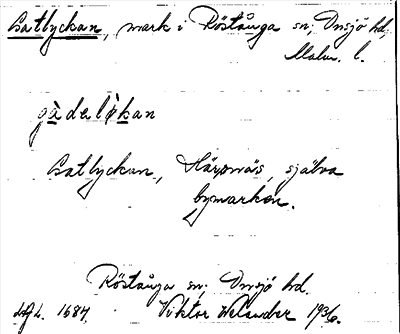 Gatlyckan, mark i Röstånga sn, Onsjö hd,
Malm. l.
gàdelýkan
Gatlyckan, själva
bymarken.
Röstånga sn. Onsjö hd.
1687. Viktor Welander 1936.